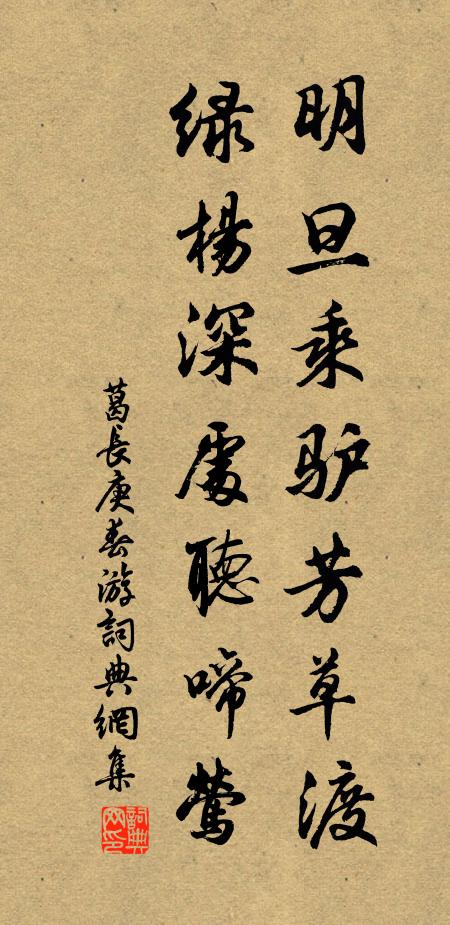 明旦乘驴芳草渡
绿杨深處聽啼莺
葛長庚春游詞典網集
詞典网印